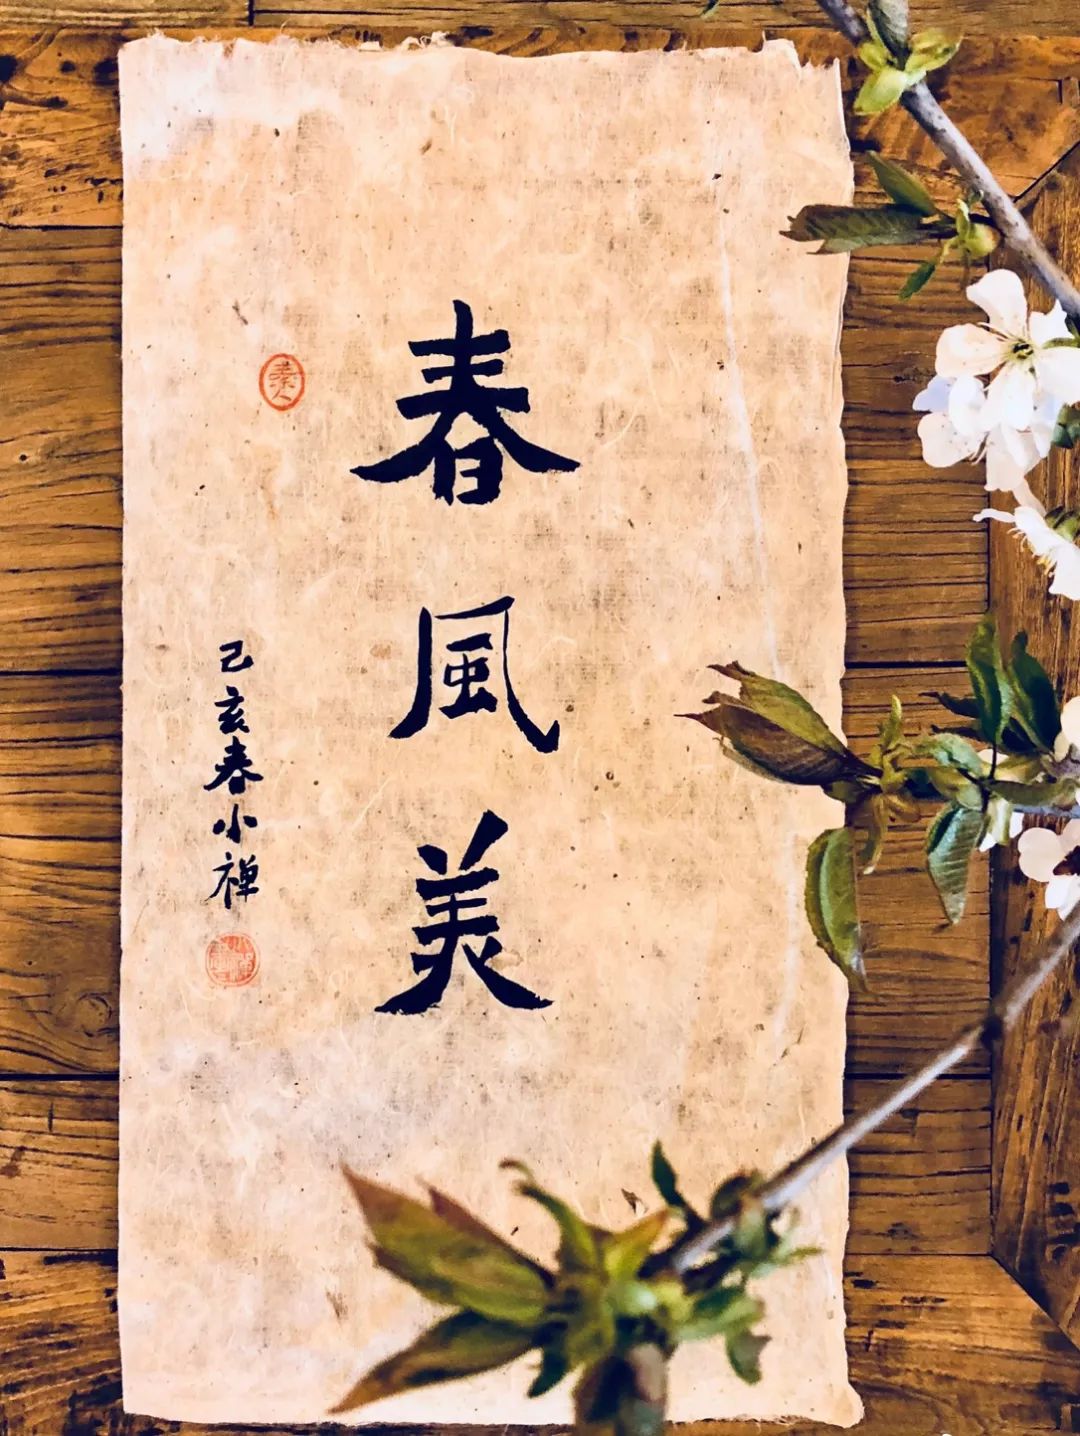 春風美
己亥春小禅